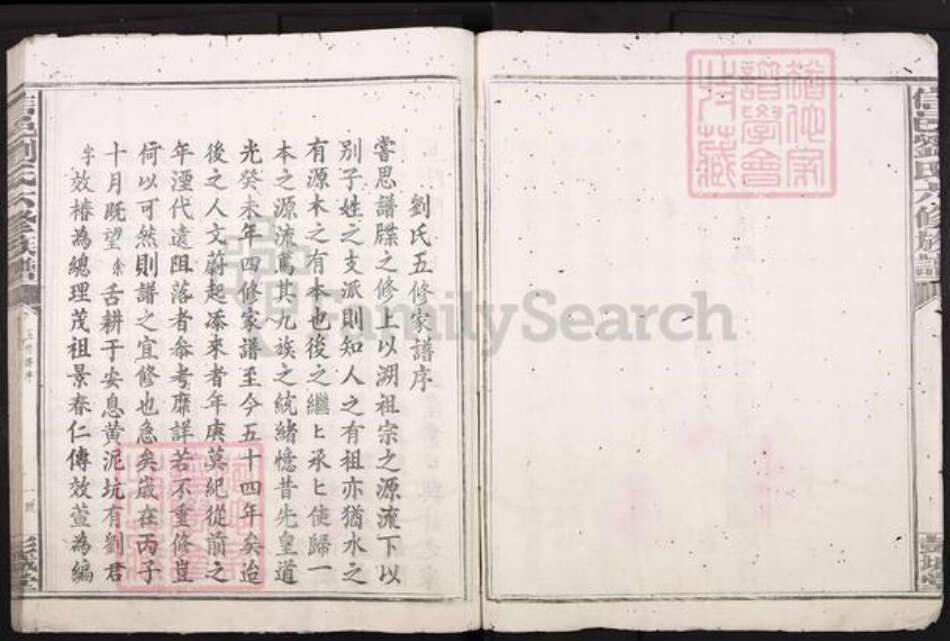 信邑劉氏六修族譜
彭城堂
猶他家
譜學會
特藏
劉氏五修家譜序
嘗思譜牒之修上以溯祖宗之源流下以
別子姓之支派則知人之有祖亦猶水之
有源木之有本也後之繼〻承〻使歸一
本之源流篤其九族之統緒憶昔先皇道
光癸未年四修家譜至今五十四年矣迨
後之人文蔚起添來者年庚莫紀從前之
年湮代遠阻落者叅考靡詳若不重修豈
何以可然則譜之宜修也急矣歲在丙子
十月既望余舌耕于安息黄泥坑有劉君
字效椿為總理茂祖景春仁傳效萱為編
信邑劉氏六修族譜
五修譜序
一號
彭城堂
FamilySearch